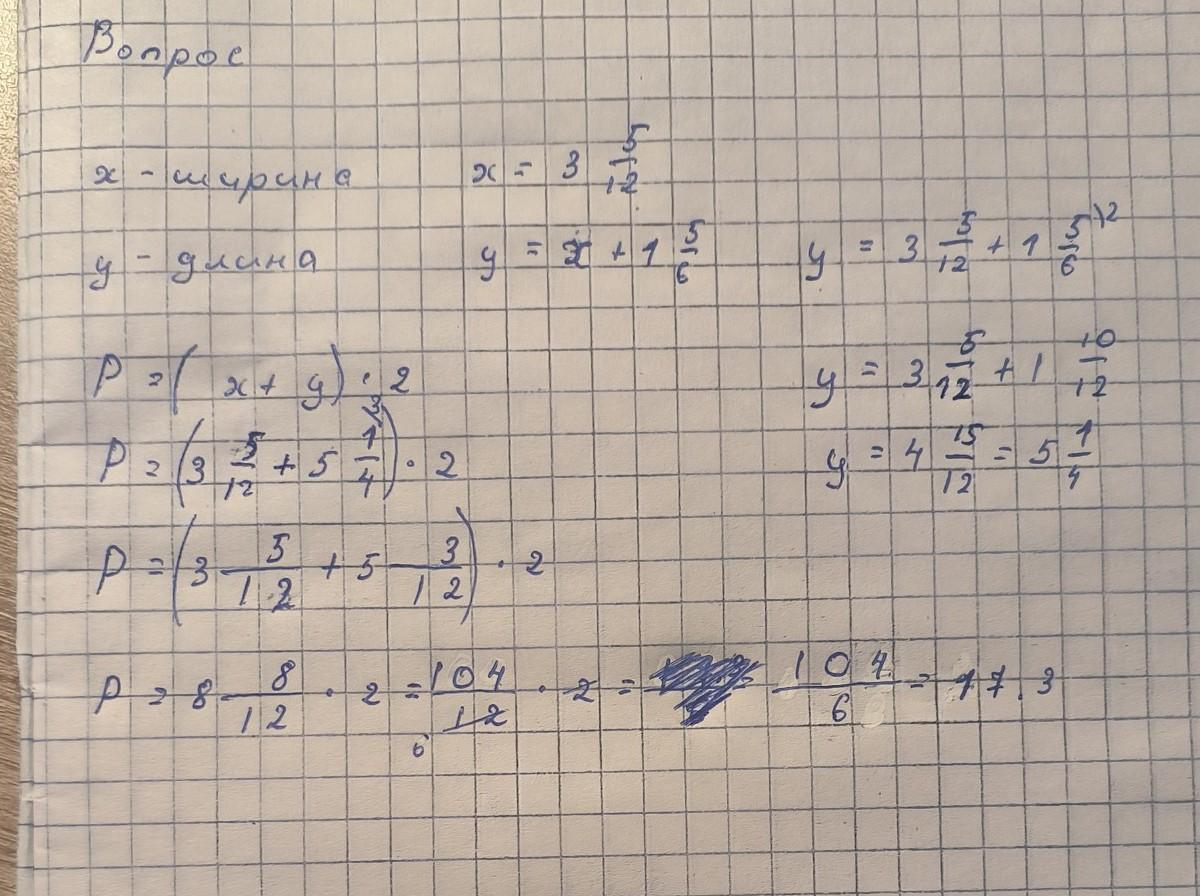 Вопрос
x - ширина x = 3 5/12
y - длина y = x + 1 5/6 y = 3 5/12 + 1 5/6 \2
P = ( x + y ) · 2 y = 3 5/12 + 1 10/12
P = (3 5/12 + 5 1/4 \3) · 2 y = 4 15/12 = 5 1/4
P = (3 5/12 + 5 3/12) · 2
P = 8 8/12 · 2 = 104/12 · 2 = 104/6 = 17.3
6